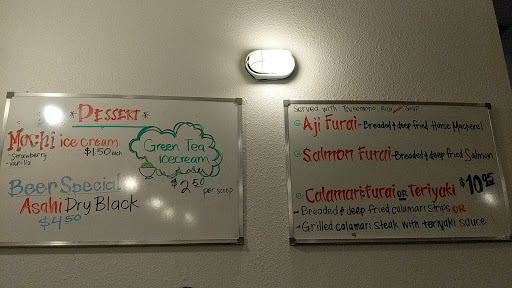 * DESSERT *
Mochi ice cream
- Strawberry
- vanilla
$1.50 each
Green Tea
icecream
$2.50
per scoop
Beer Special
Asahi Dry Black
$4.50
Served with Tsukemono, Rice, Soup
Aji Furai - Breaded & deep fried Horse Mackerel
Salmon Furai - Breaded & deep fried Salmon
Calamari: Furai OR Teriyaki $10.95
- Breaded & deep fried calamari strips OR
- Grilled calamari steak with teriyaki sauce